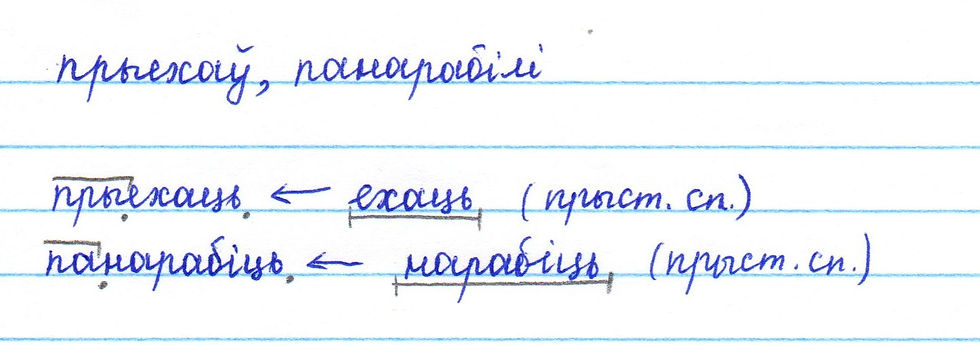 прыехаў, панарабілі
прыехаць ← ехаць (прыст. сп.)
панарабіць ← нарабіць (прыст. сп.)